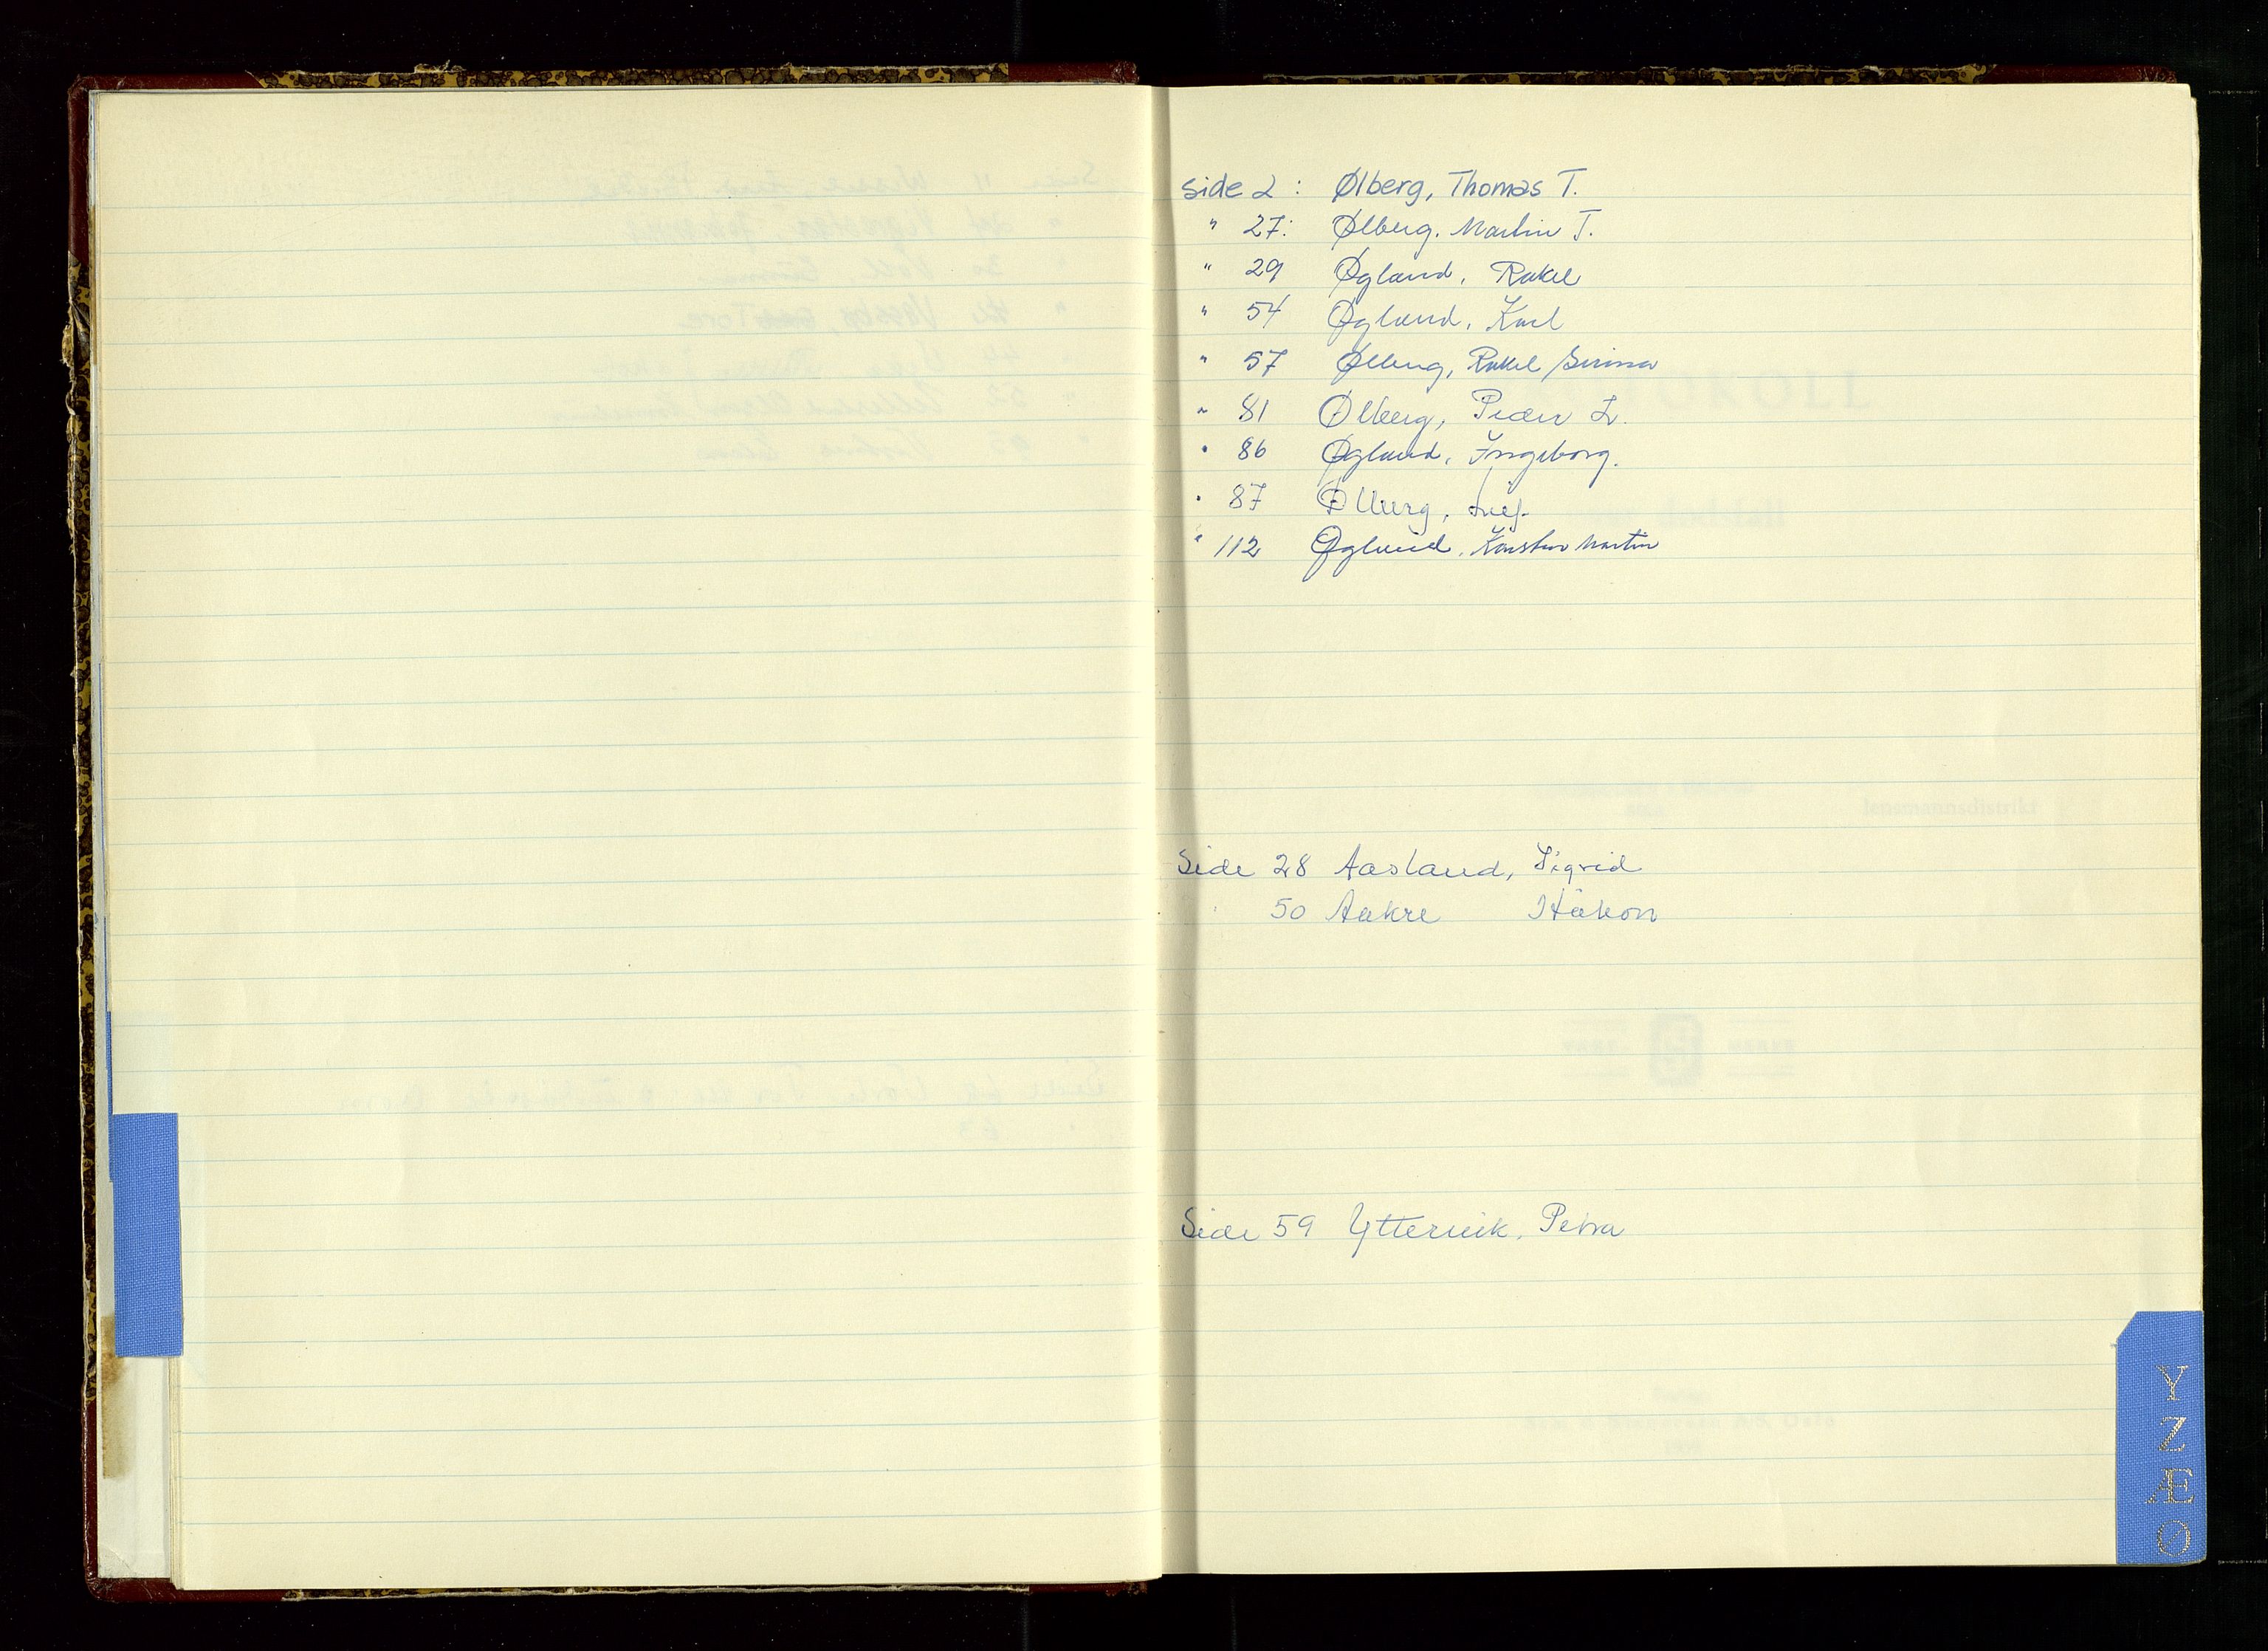 Side 2: Ølberg, Thomas T.
" 27: Ølberg. Martin T.
" 29 Øgland, Rakel
" 54 Øgland, Karl
" 57 Ølberg, Rakel Serina
" 81 Ølberg, Peder L.
" 86 Øgland, Ingeborg.
" 87 Ølberg, Leif
" 112 Øgland, Karsten Martin
Side 28 Aasland, Sigrid
50 Aakre Håkon
Side 59 Yttervik, Petra
Y
Z
Æ
Ø